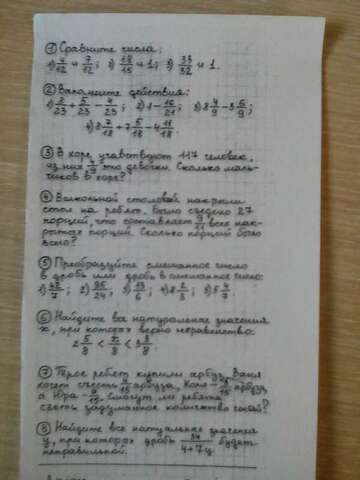 ① Сравните числа:
1) 4/12 и 7/12; 2) 18/15 и 1; 3) 33/32 и 1.
② Выполните действия:
1) 8/23 + 5/23 − 4/23; 2) 1 − 16/21; 3) 8 4/9 − 3 6/9;
4) 8 7/18 + 7 5/18 − 4 11/18.
③ В хоре учавствуют 117 человек,
из них /9 это девочки. Сколько маль-
чиков в хоре?
④ Вшкольной столовой накрыли
стол на ребят. Было съедено 27
порций, что составляет 9/11 всех нак-
рытых порций. Сколько порций было
всего?
⑤ Преобразуйте смешанное число
в дробь или дробь в смешанное число:
1) /7; 2) 95/24; 3) 13/6; 4) 8 2/3; 5) 5 4/7
⑥ Найдите все натуральные значения
x, при которых верно неравенство:
2 5/8 < x/8 < 3 3/8
⑦ Трое ребят купили арбуз. Ваня
хочет съесть 4/15 арбуза, Коля - /15 арбуз,
а Юра - /15. Смогут ли ребята
съесть задуманное количество частей?
⑧ Найдите все натуральные значения
y, при которых дробь 34/4+7y будет
неправильной.